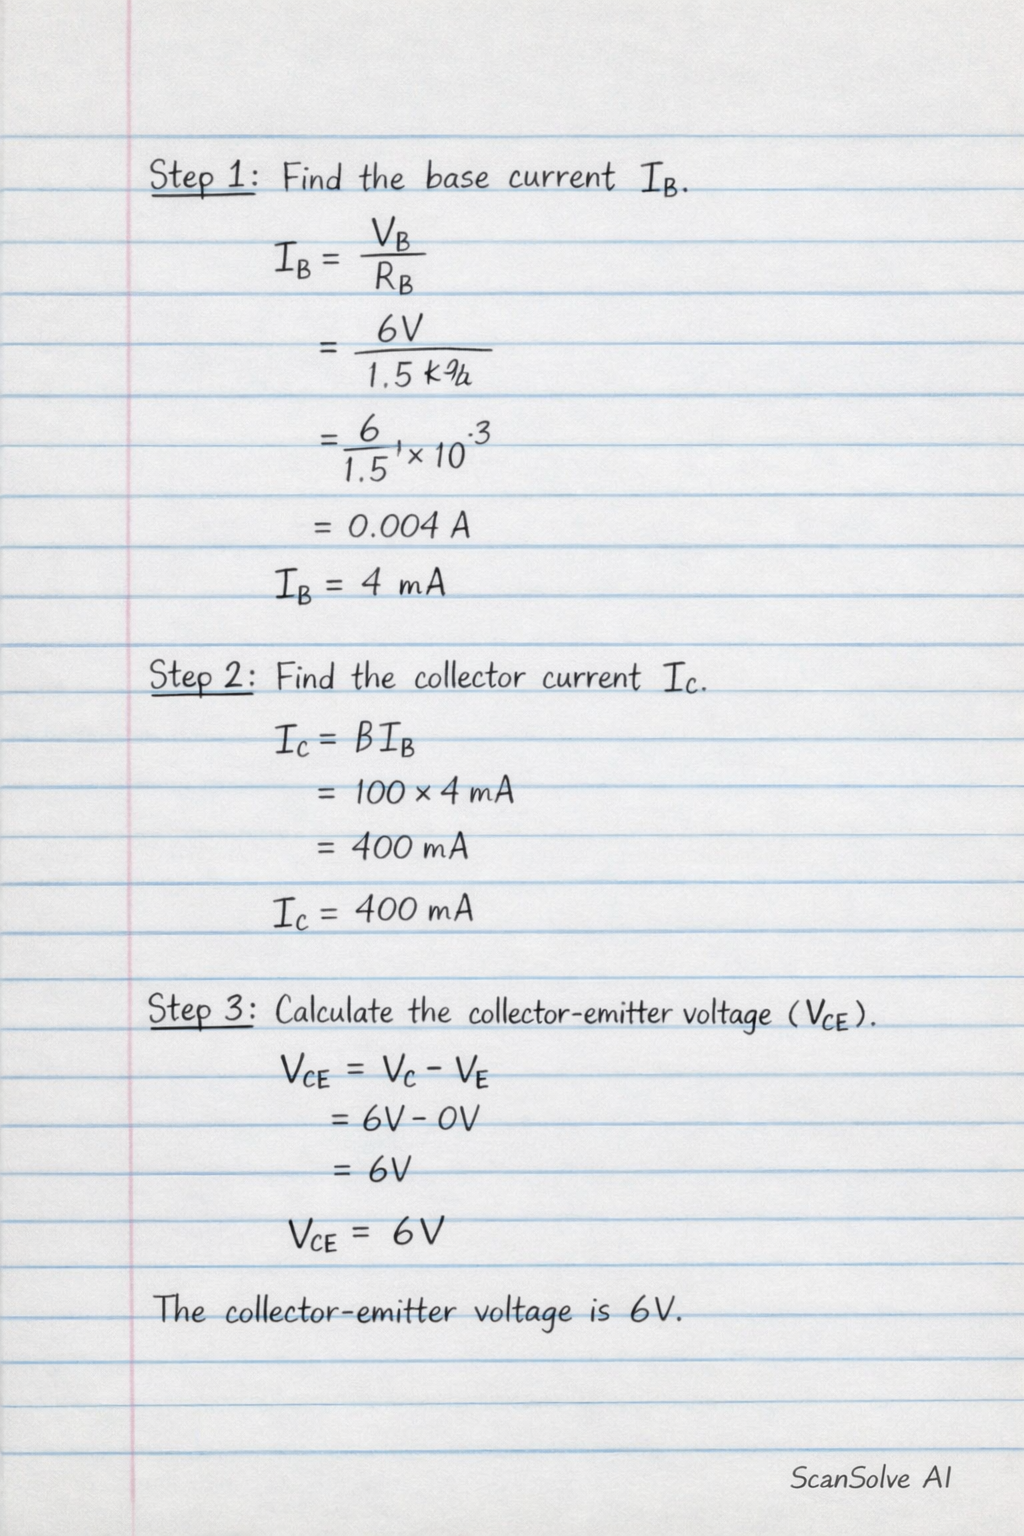 Step 1: Find the base current I_B.
I_B = V_B / R_B
= 6V / 1.5 k
= 6 / 1.5 ' × 10^·3
= 0.004 A
I_B = 4 mA
Step 2: Find the collector current I_C.
I_C = B I_B
= 100 × 4 mA
= 400 mA
I_C = 400 mA
Step 3: Calculate the collector-emitter voltage (V_CE).
V_CE = V_C - V_E
= 6V - 0V
= 6V
V_CE = 6V
The collector-emitter voltage is 6V.
ScanSolve AI